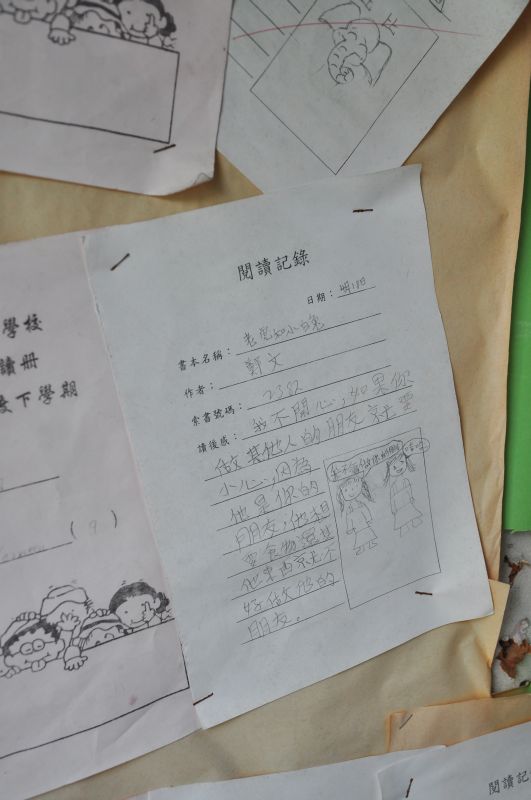 閱讀記錄
日期：
書本名稱：老鼠和小白兔
作者：鄭文
索書號碼：2382
讀後感：我不開心，如果你
做其他人的朋友就要
小心，因為
他是你的
朋友，他想
要食物還其
他東西就不
好做他的
朋友。
學校
讀冊
校下學期
( 9 )
閱讀記